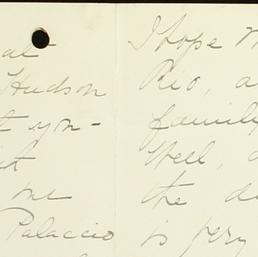 at
Hudson
t you -
it
me
Palaccio
I hope
Rio, a
family
Well, a
the de
is very